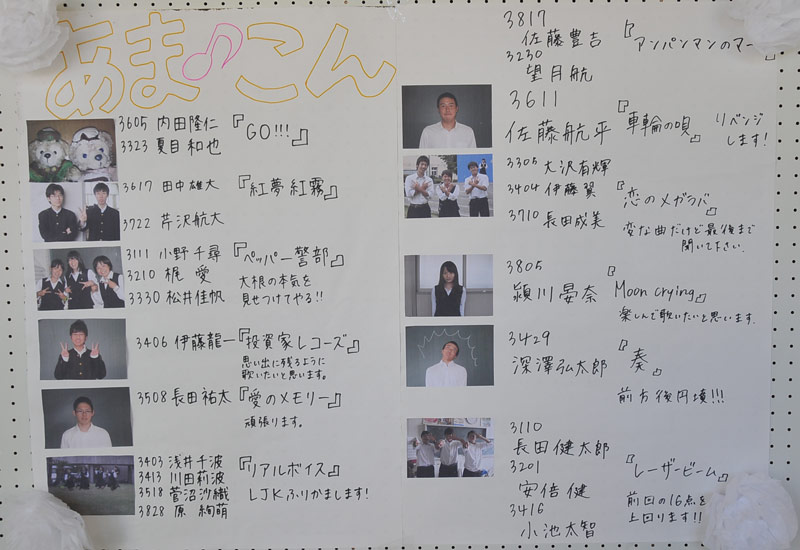 あま♪こん
3605 内田隆仁 『GO!!!』
3323 夏目 和也
3617 田中雄大 『紅夢紅霧』
3722 芹沢航大
3111 小野千尋 『ペッパー警部』
3210 梶 愛 大根の本気を
3330 松井佳帆 見せつけてやる!!
3406 伊藤龍一 『投資家レコーズ』
思い出に残るように
歌いたいと思います。
3508 長田祐太 『愛のメモリー』
頑張ります。
3403 浅井千波 『リアルボイス』
3413 川田莉波
3518 菅沼沙織 LJKふりかまします!
3828 原 絢萌
3817
佐藤豊吉 『アンパンマンのマーチ』
3230
望月航
3611
佐藤航平 『車輪の唄』 リベンジ
します!
3305 大沢有輝
3404 伊藤翼 『恋のメガラバ』
3710 長田成美 変な曲だけど最後まで
聞いて下さい.
3805
頴川晏奈 『Moon crying』
楽しんで歌いたいと思います.
3429
深澤弘太郎 『奏』
前方後円墳!!!
3110
長田健太郎
3201 『レーザービーム』
安倍健 前回の16点を
3416 上回ります!!
小池太智